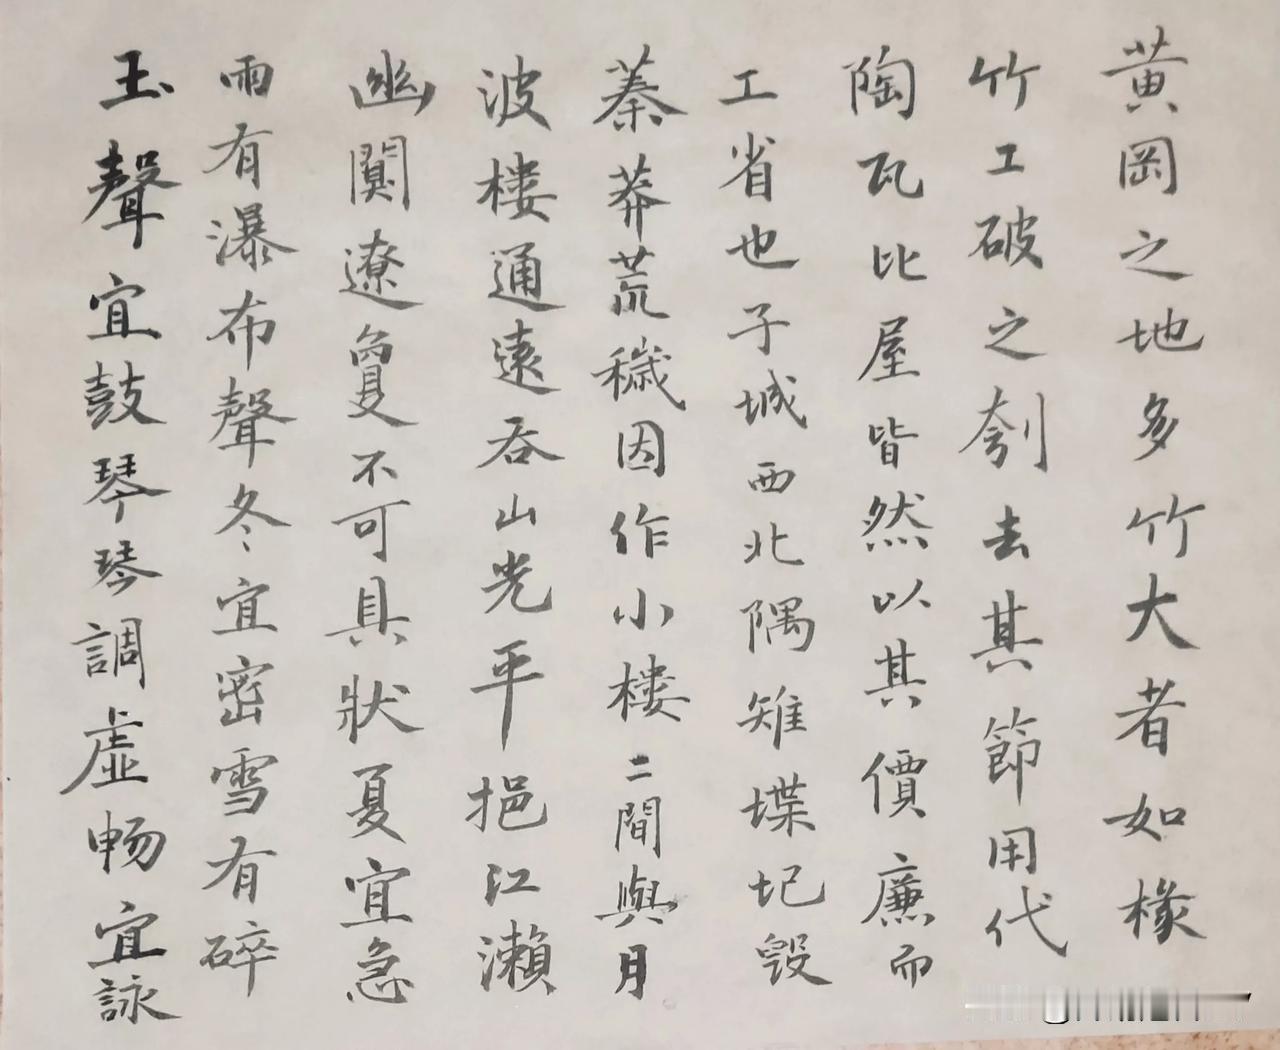 黄岡之地多竹大者如椽
竹工破之刳去其節用代
陶瓦比屋皆然以其價廉而
工省也子城西北隅雉堞圮毁
蓁莽荒穢因作小樓二間與月
波樓通遠吞山光平挹江瀨
幽闃遼夐不可具狀夏宜急
雨有瀑布聲冬宜密雪有碎
玉聲宜鼓琴琴調虛畅宜詠